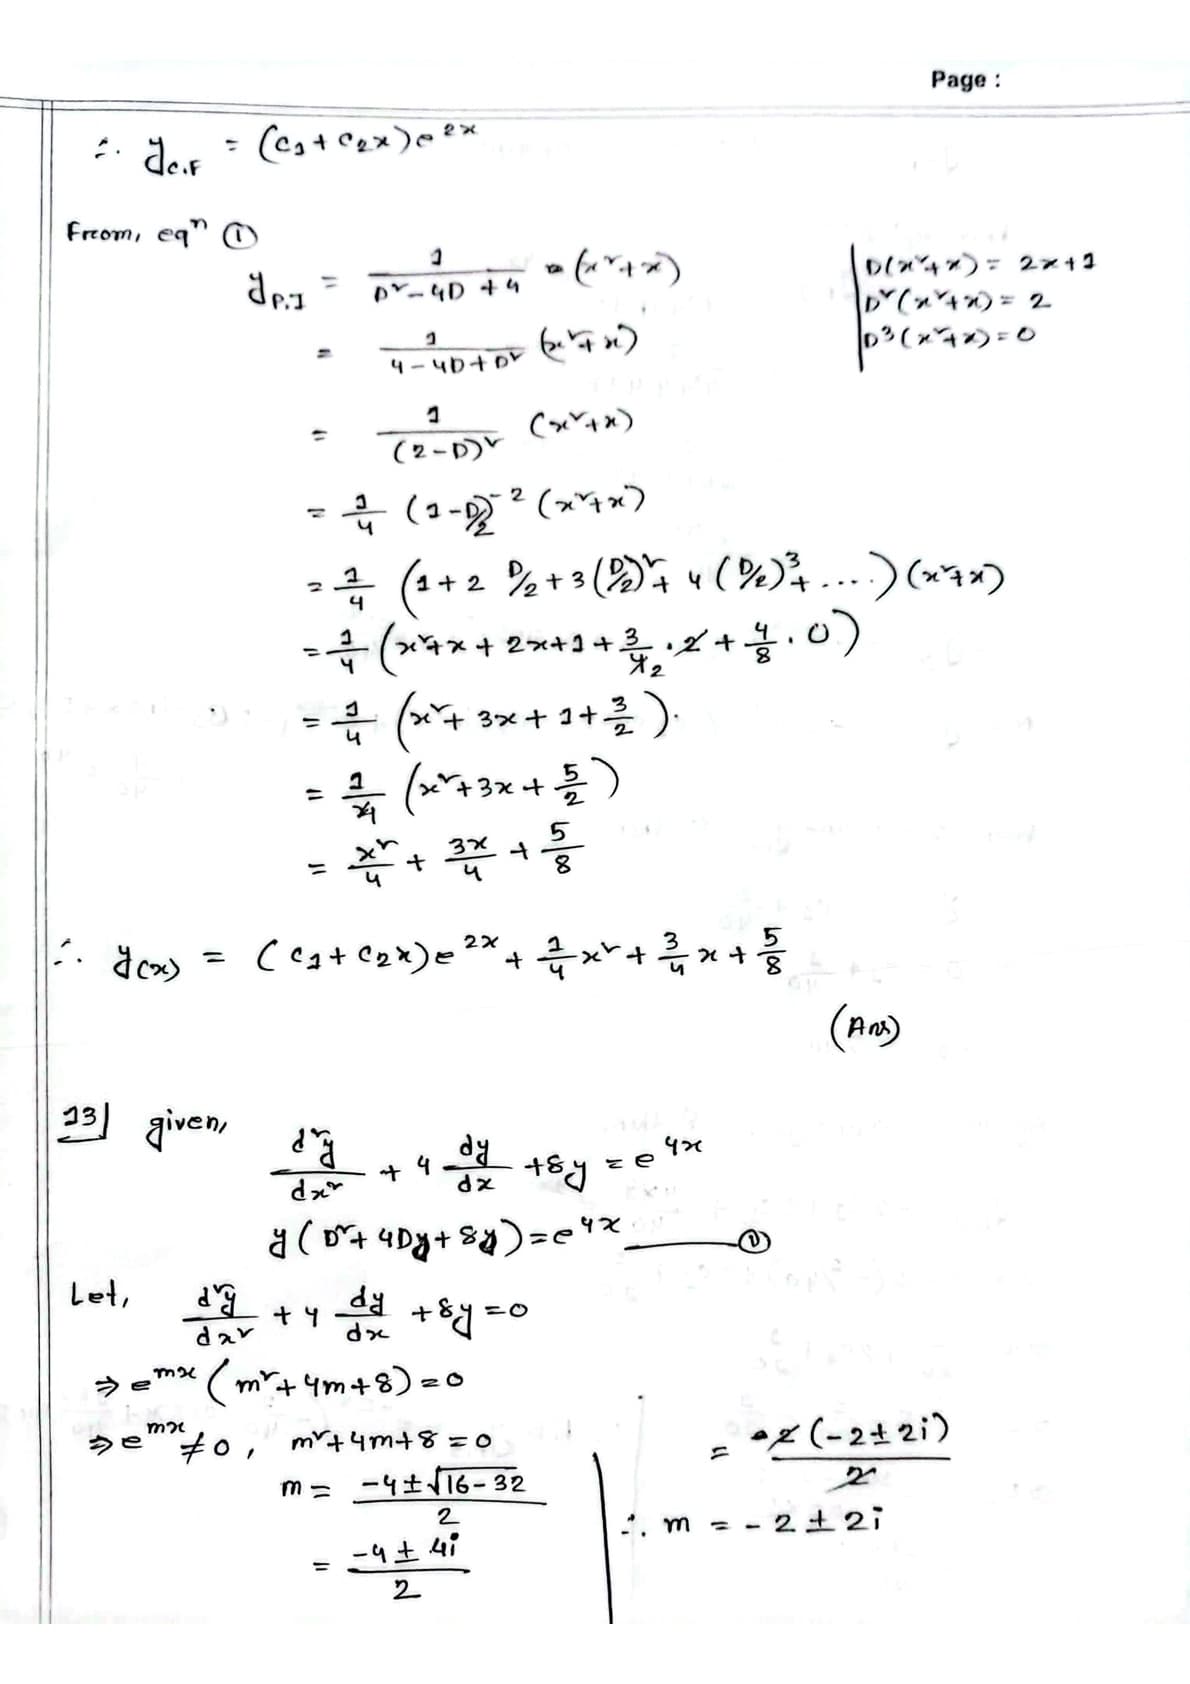 Page :
∴ y_{C.F} = (c₁+c₂x)e^{2x}
From, eqⁿ ①
y_{P.I} = 1/(D²-4D+4) (x²+x)
D(x²+x) = 2x+1
D²(x²+x) = 2
D³(x²+x) = 0
= 1/(4-4D+D²) (x²+x)
= 1/(2-D)² (x²+x)
= 1/4 (1-D/2)^{-2} (x²+x)
= 1/4 (1+2 D/2+3(D/2)²+4(D/2)³+....)(x²+x)
= 1/4 (x²+x+2x+1+3/4·2+4/8·0)
= 1/4 (x²+3x+1+3/2).
= 1/4 (x²+3x+5/2)
= x²/4 + 3x/4 + 5/8
∴ y(x) = (c₁+c₂x)e^{2x}+1/4x²+3/4x+5/8
(Ans)
13] given,
d²y/dx² + 4 dy/dx +8y = e^{4x}
y(D²+4Dy+8y)=e^{4x} ——— ①
Let, d²y/dx² + 4 dy/dx +8y=0
⇒ e^{mx}(m²+4m+8)=0
⇒ e^{mx}≠0, m²+4m+8=0
m = (-4±√16-32)/2
= (-4±4i)/2
= 2(-2±2i)/2
∴ m = -2±2i